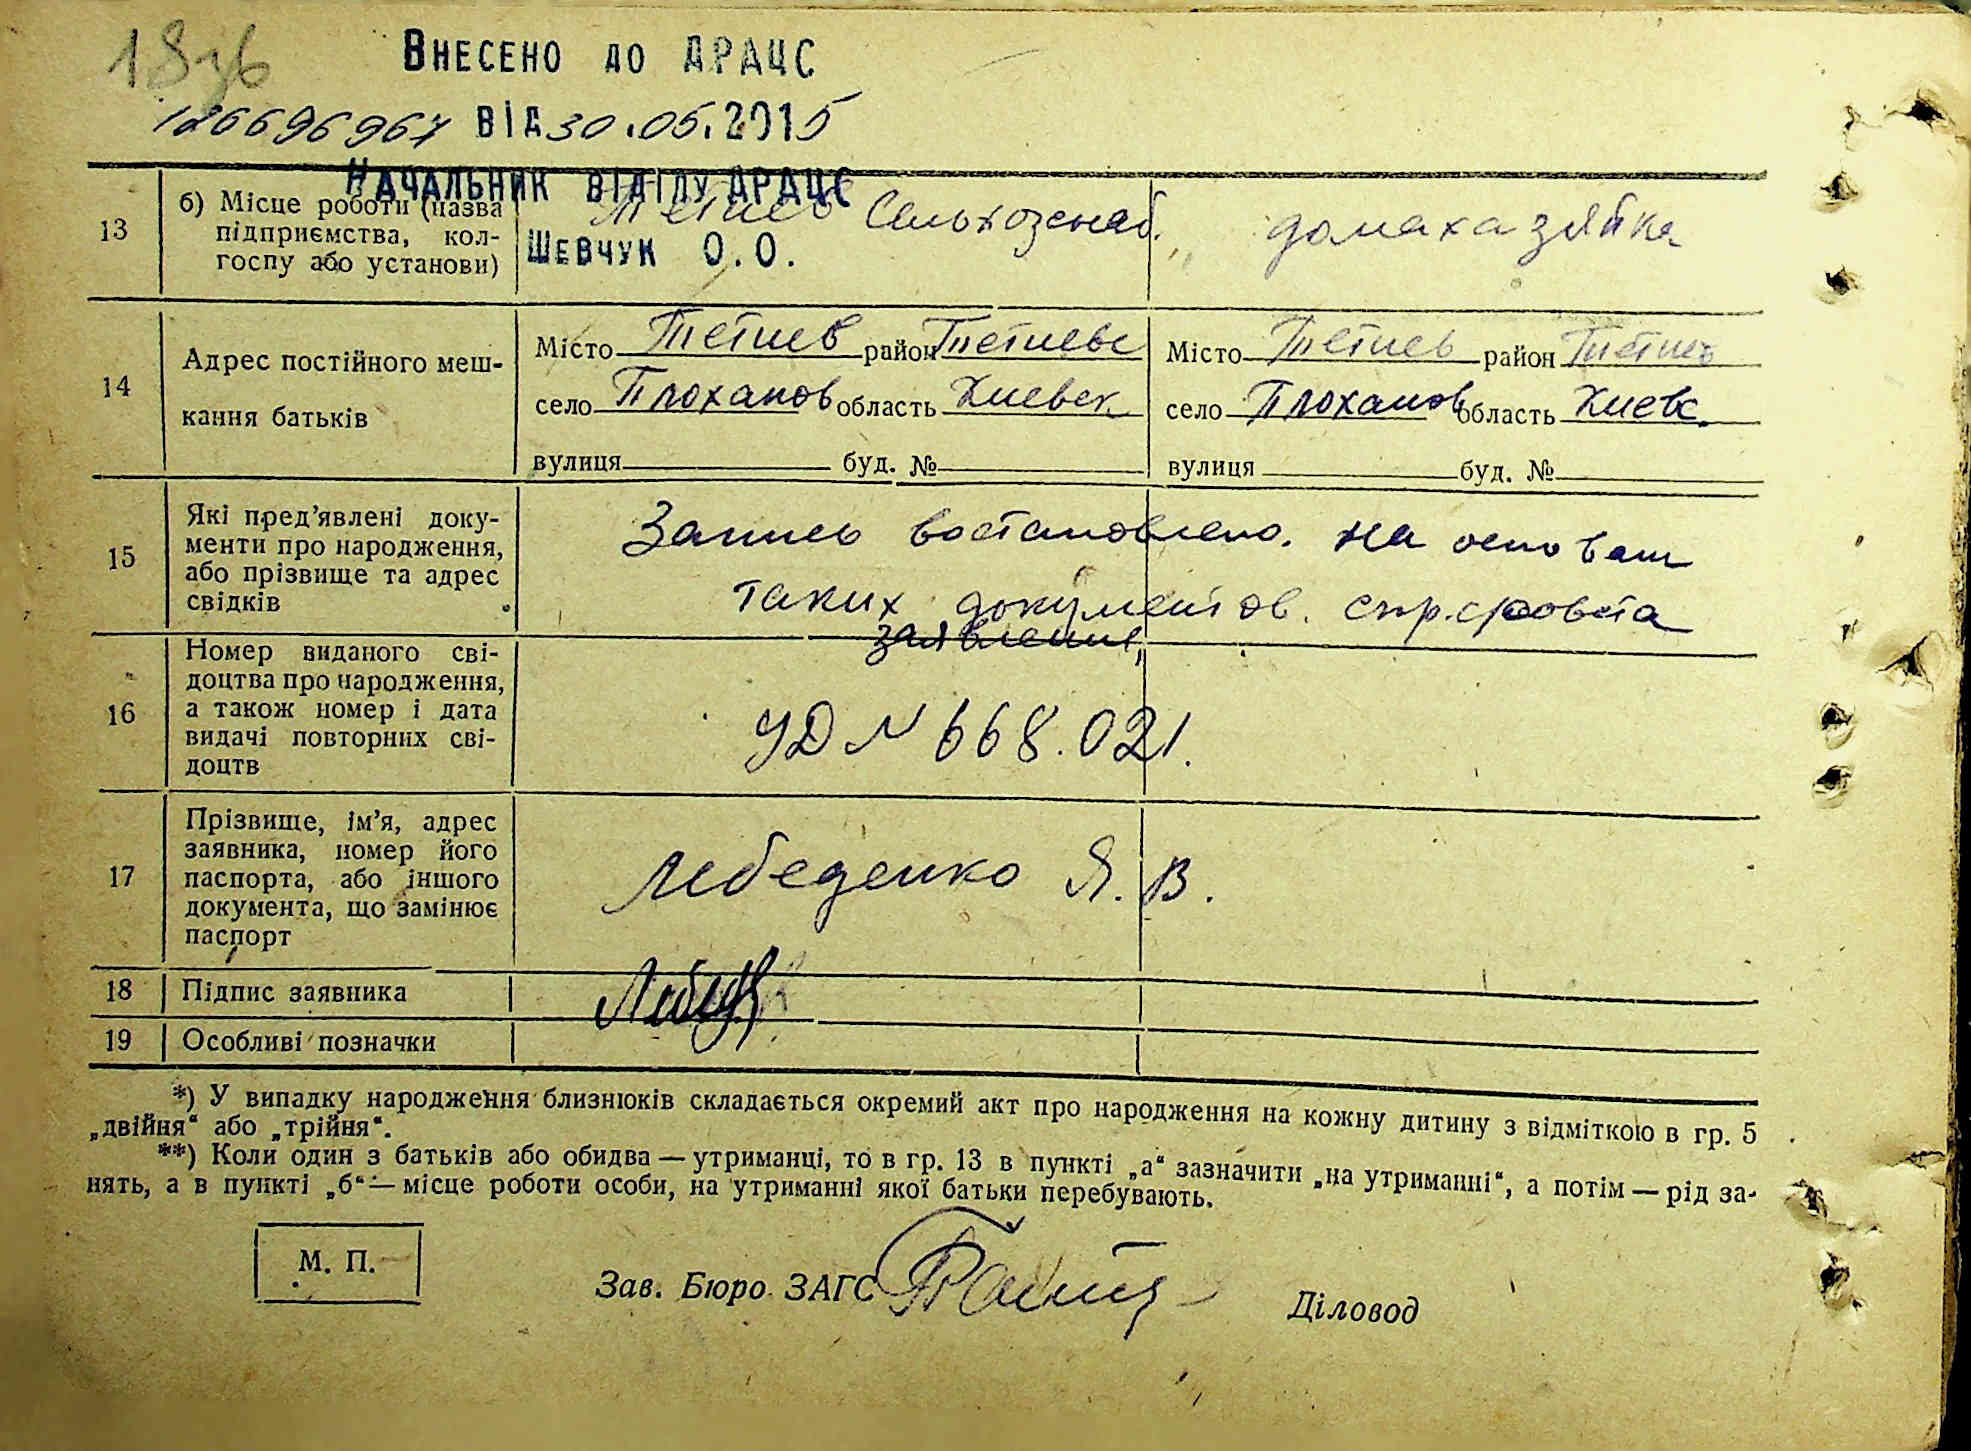 18зв
Внесено до ДРАЦС
126696967 від 30.05.2015
Начальник відділу ДРАЦС
Шевчук О.О.
13
б) Місце роботи (назва
підприємства, кол-
госпу або установи)
Тетиев Сельхозснаб.
домахазяйка
14
Адрес постійного меш-
кання батьків
Місто Тетиев район Тетиевс
село Плоханов область Киевск
вулиця буд. №
Місто Тетиев район Тетиев
село Плоханов область Киевс.
вулиця буд. №
15
Які пред’явлені доку-
менти про народження,
або прізвище та адрес
свідків
Запись востановлено. на основаии
таких документов. спр.с/совета
заявление,
16
Номер виданого сві-
доцтва про народження,
а також номер і дата
видачі повторних сві-
доцтв
УД N 668.021.
17
Прізвище, ім’я, адрес
заявника, номер його
паспорта, або іншого
документа, що замінює
паспорт
Лебеденко Я. В.
18
Підпис заявника
19
Особливі позначки
*) У випадку народження близнюків складається окремий акт про народження на кожну дитину з відміткою в гр. 5
„двійня“ або „трійня“.
**) Коли один з батьків або обидва — утриманці, то в гр. 13 в пункті „а“ зазначити „на утриманні“, а потім — рід за-
нять, а в пункті „б“ — місце роботи особи, на утриманні якої батьки перебувають.
М. П.
Зав. Бюро ЗАГС
Діловод